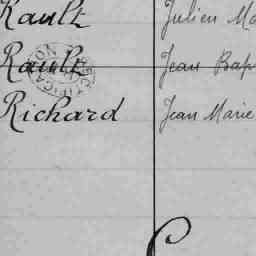 Rault Julien
Rault Jean Bap
Richard Jean Marie